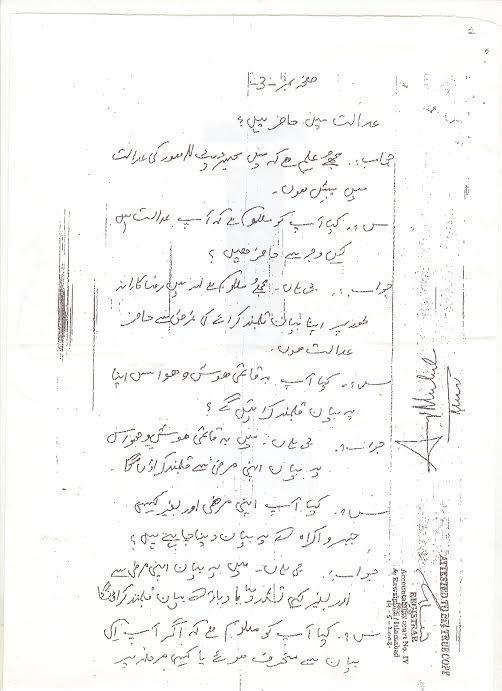 صفحہ نمبر -3-
عدالت میں حاضر ہیں؟
جواب:۔ مجھے علم ہے کہ میں مجسٹریٹ لاہور کی عدالت
میں پیش ہوں۔
س:۔ کیا آپ کو معلوم ہے کہ آپ عدالت میں
کس وجہ سے حاضر ہیں؟
جواب:۔ جی ہاں۔ مجھے معلوم ہے اور میں رضاکارانہ
طور پر اپنا بیان قلمبند کرانے کی غرض سے حاضر
عدالت ہوں۔
س:۔ کیا آپ بہ قائمی ہوش و حواس اپنا
یہ بیان قلمبند کرائیں گے؟
جواب:۔ جی ہاں۔ میں بہ قائمی ہوش و حواس
یہ بیان اپنی مرضی سے قلمبند کراؤں گا۔
س:۔ کیا آپ اپنی مرضی اور بغیر کسی
جبر و اکراہ کے یہ بیان دینا چاہتے ہیں؟
جواب:۔ جی ہاں۔ میں یہ بیان اپنی مرضی سے
اور بغیر کسی تشدد یا دباؤ کے بیان قلمبند کراؤنگا
س:۔ کیا آپ کو معلوم ہے کہ اگر آپ اس
بیان سے منحرف ہوئے یا کسی مرحلہ پر
ATTESTED TO BE TRUE COPY
REGISTRAR
Accountability Court No. IV
Rawalpindi / Islamabad
14-5-2008